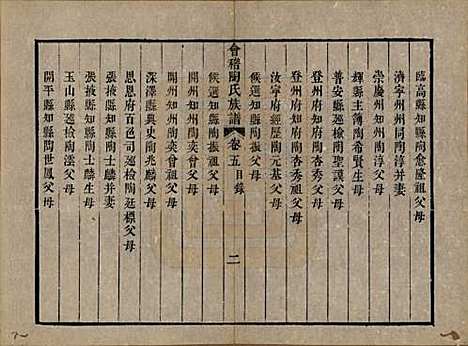 臨高縣知縣陶愈隆祖父母
濟寧州州同陶淳并妻
崇慶州知州陶淳父母
輝縣主簿陶希賢生母
普安縣巡檢陶聖謨父母
登州府知府陶杏秀父母
登州府知府陶杏秀祖父母
汝寧府經歷陶元基父母
候選知縣陶振祖父母
會稽陶氏族譜 卷五 目錄 二
候選知縣陶振曾祖父母
開州知州陶奕曾父母
開州知州陶奕曾祖父母
深澤縣典史陶兆麟父母
思恩府百色司巡檢陶廷標父母
張掖縣知縣陶士麟并妻
張掖縣知縣陶士麟生母
玉山縣巡檢陶澐父母
開平縣知縣陶世鳳父母